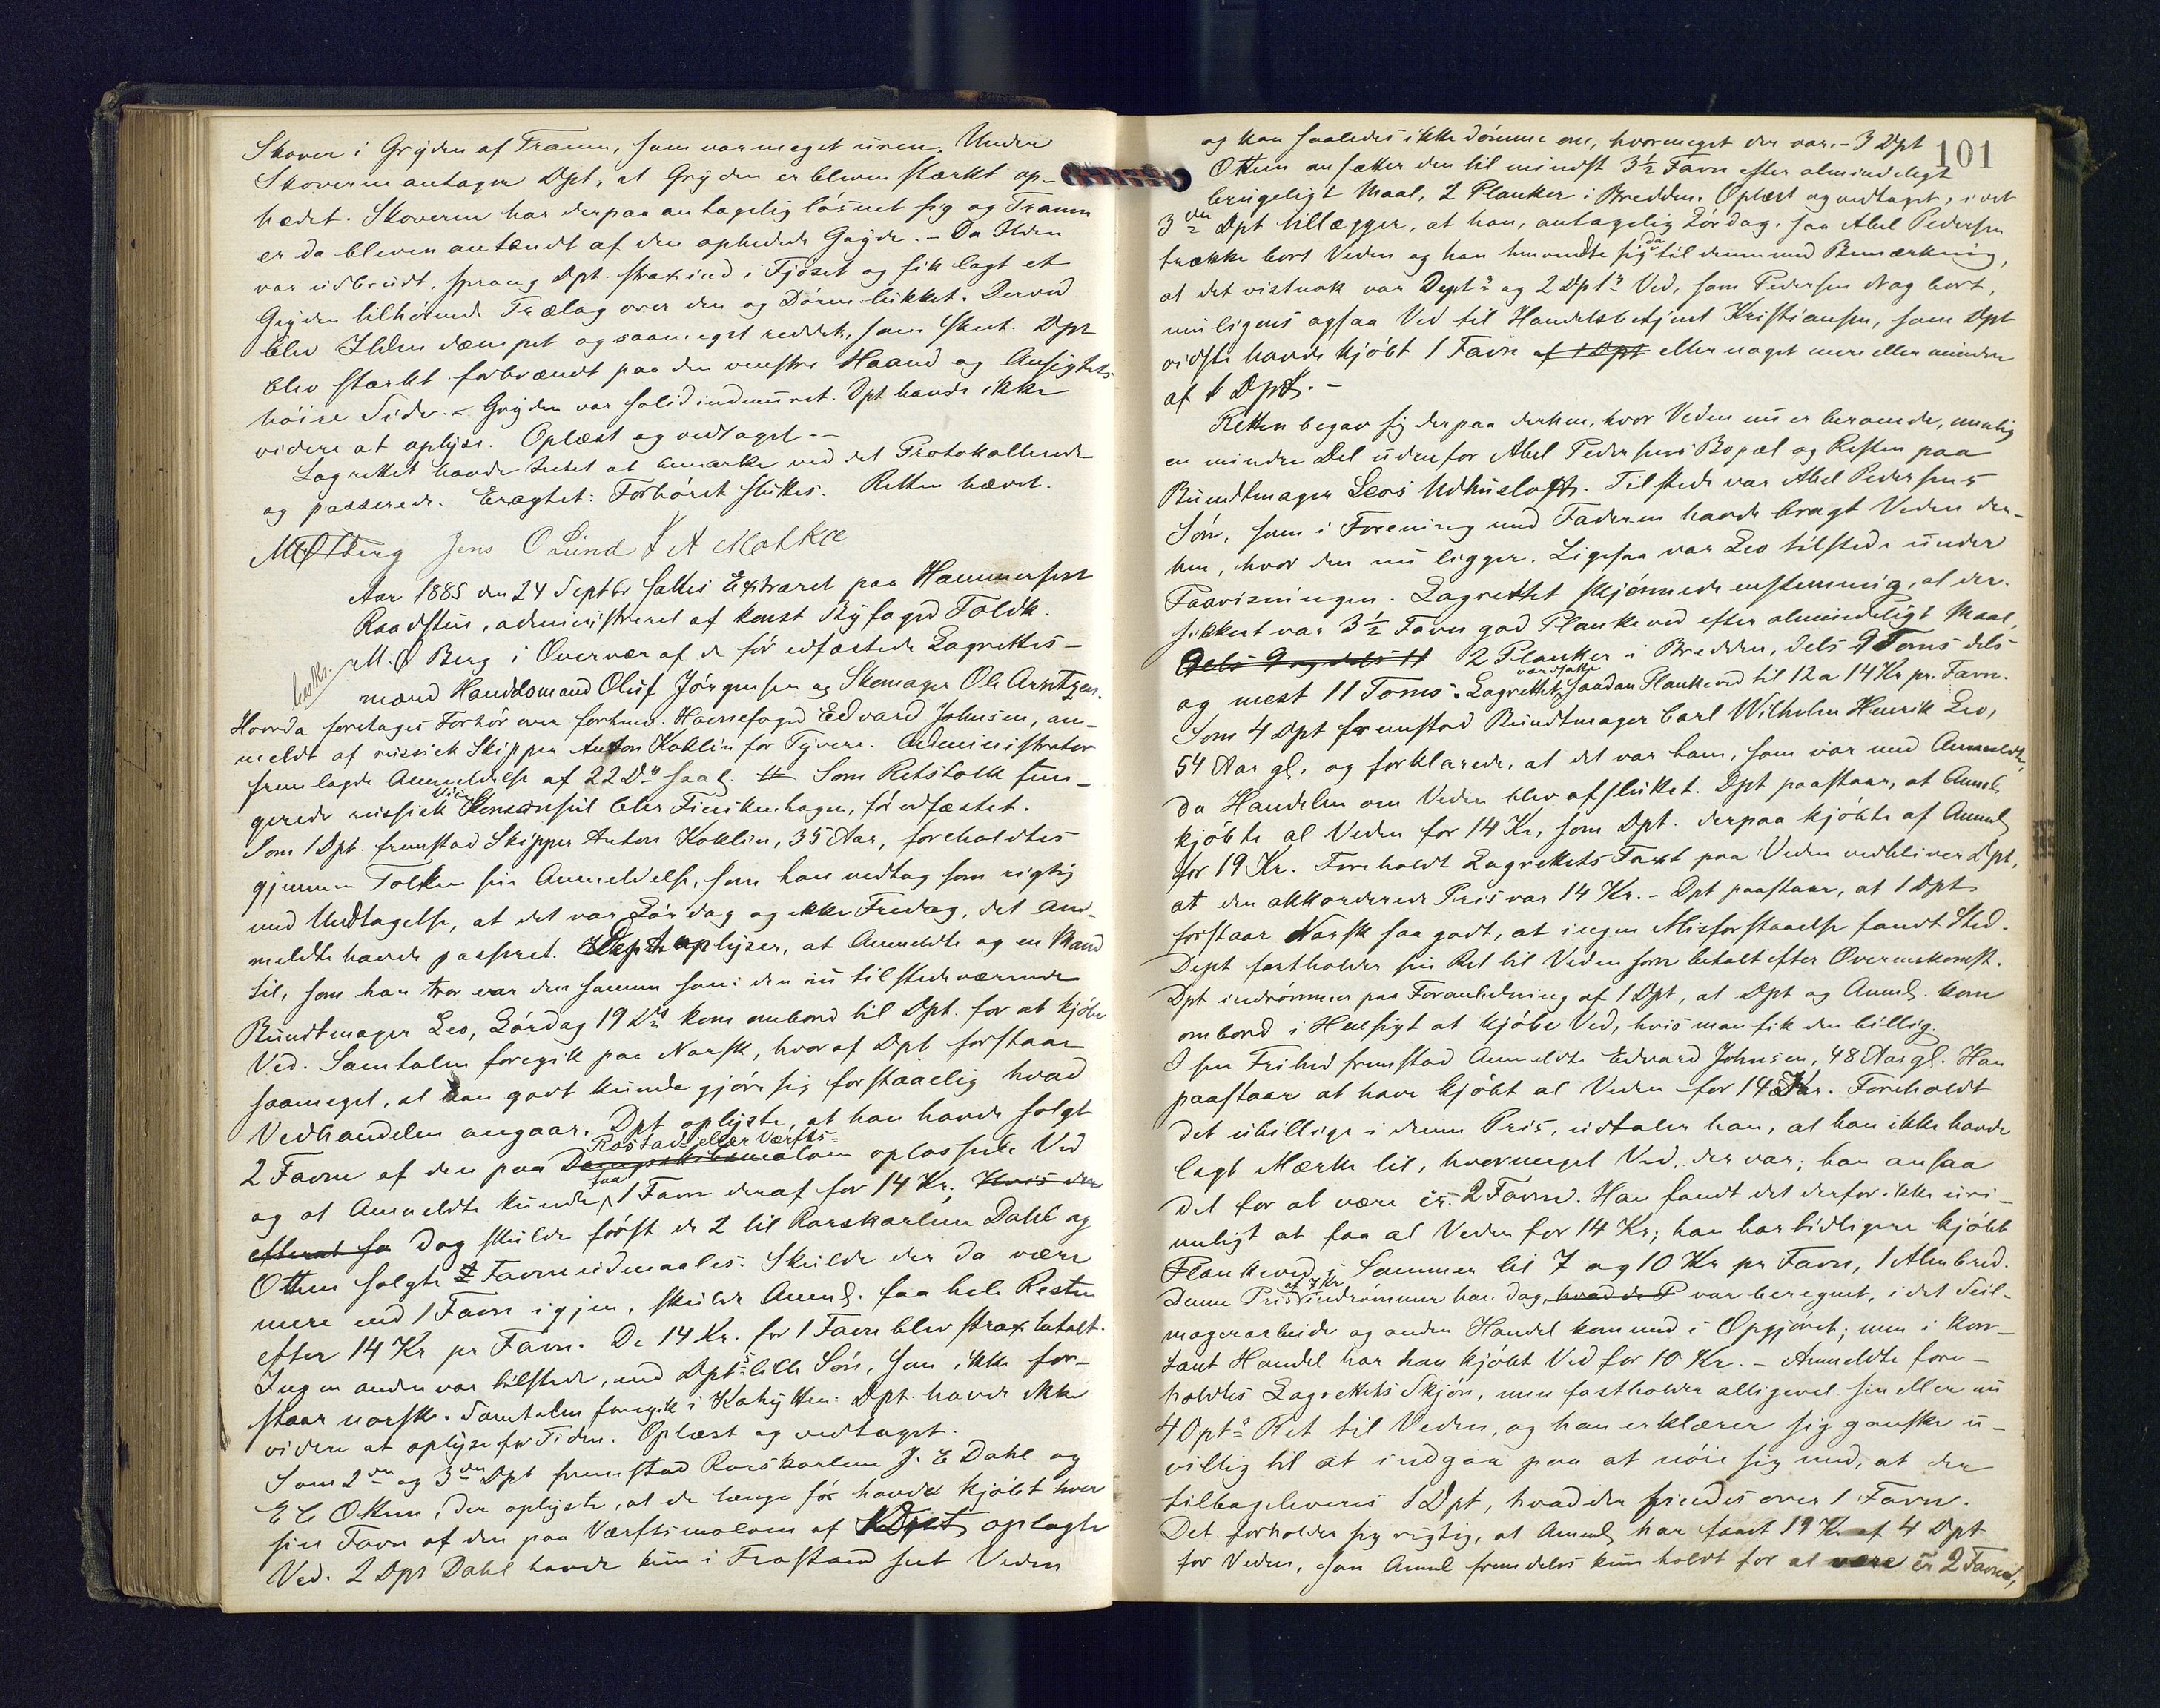 Skover i Gryden af Tranen, som var meget uren. Under
Skoverne antager Dpt, at Gryden er bleven stærkt op-
hedet. Skoverne har derpaa antagelig løsnet sig og Tranen
er da bleven antændt af den ophedede Gryde. - Da Ilden
var udbrudt, sprang Dpt. strax ind i Fjøset og fik lagt et
Gryden tilhørende Trælaag over den og Døren lukket. Derved
blev Ilden dæmpet og saameget reddet, som skeet. Dpt
blev stærkt forbrændt paa den venstre Haand og Ansigtets
høire Side. - Gryden var solid indmuret. Dpt havde ikke
videre at oplyse. Oplæst og vedtaget. -
Lagrettet havde Intet at bemærke ved det Protokollerede
og passerede. Eragtet: Forhøret sluttes. Retten hævet.
M Ø Berg Jens O Lund J A Mathke
Aar 1885 den 24 Septbr sattes Extraret paa Hammerfest
Raadstue, administreret af const Byfoged Foldk.
M. Ø Berg i Overvær af de før edfæstede Lagrettes-
mænd Handelsmand Oluf Jørgensen og Skomager Ole Arntzen.
beskr.
Hvorda foretages Forhør over forhenv. Havnefoged Edvard Johnsen, an-
meldt af russisk Skipper Anton Koklin for Tyveri. Administrator
fremlagde Anmeldelse af 22 Ds saal. Som Retstolk fun-
gerede russisk Vice Konsul Finckenhagen, før edfæstet.
Som 1 Dpt. fremstod Skipper Anton Koklin, 35 Aar, foreholdtes
gjennem Tolken sin Anmeldelse, som han vedtog som rigtig
med Undtagelse, at det var Lørdag og ikke Fredag, det an-
meldte havde passeret. Dept oplyser, at Anmeldte og en Mand
til, som han tror var den samme som den nu tilstedeværende
Bundtmager Leo, Lørdag 19 Ds kom ombord til Dpt. for at kjøbe
Ved. Samtalen foregik paa Norsk, hvoraf Dpt forstaar
saameget, at han godt kunde gjøre sig forstaaelig hvad
Vedhandelen angaar. Dpt oplyste, at han havde solgt
Rostad eller Værfts-
2 Favne af den paa Dampskibsmoloen oplossede Ved
og at Anmeldte kunde faa 1 Favn deraf for 14 Kr. Hvis der
efterat fa Dog skulde først de 2 til Rorskarlene Dahl og
Ottem solgte Favne udmaales. Skulde der da være
mere end 1 Favn igjen, skulde Anmel. faa hele Resten
efter 14 Kr pr Favn. De 14 Kr. for 1 Favn blev strax betalt.
Ingen anden var tilstede, end Dpts lille Søn, som ikke for-
staar norsk. Samtalen foregik i Kahytten. Dpt. havde ikke
videre at oplyse for Tiden. Oplæst og vedtaget.
Som 2den og 3die Dpt fremstod Rorskarlene J. E Dahl og
E C Ottem, der oplyste, at de længe før havde kjøbt hver
sin Favn af den paa Værftsmoloen af 1 Dpt oplagte
Ved. 2 Dpt Dahl havde kun i Frastand seet Veden
101
og kan saaledes ikke dømme om, hvormeget der var. - 3 Dpt
Ottem ansætter den til mindst 3½ Favn efter almindeligt
brugeligt Maal, 2 Planker i Bredden. Oplæst og vedtaget, idet
3die Dpt tillægger, at han, antagelig Lørdag, saa Abel Pedersen
trække bort Veden og han henvendte sig da til denne med Bemærkning,
at det vistnok var Depts og 2 Dpts Ved, som Pedersen drog bort,
muligens ogsaa Ved til Handelsbetjent Kristiansen, som Dpt
vidste havde kjøbt 1 Favn af 1 Dpt eller noget mere eller mindre
af 1 Dpt. -
Retten begav sig derpaa derhen, hvor Veden nu er beroende, nemlig
en mindre Del udenfor Abel Pedersens Bopæl og Resten paa
Bundtmager Leos Udhusloft. Tilstede var Abel Pedersens
Søn, som i Forening med Faderen havde bragt Veden der-
hen, hvor den nu ligger. Ligesaa var Leo tilstede under
Paavisningen. Lagrettet skjønnede enstemmig, at der
sikkert var 3½ Favn god Plankeved efter almindeligt Maal,
Dels 9 og dels 11 2 Planker i Bredden, dels 9 Toms dels
og mest 11 Toms. Lagrettet værdsatte saadan Plankeved til 12 a 14 Kr pr. Favn.
Som 4 Dpt fremstod Bundtmager Carl Wilhelm Henrik Leo,
54 Aar gl. og forklarede, at det var ham, som var med Anmeldte,
da Handelen om Veden blev afsluttet. Dpt paastaar, at Anmel.
kjøbte al Veden for 14 Kr, som Dpt. derpaa kjøbte af Anmel.
for 19 Kr. Foreholdt Lagrettets Taxt paa Veden vedbliver Dpt,
at den akkorderede Pris var 14 Kr. - Dpt paastaar, at 1 Dpt
forstaar Norsk saa godt, at ingen Misforstaaelse fandt Sted.
Dept fastholder sin Ret til Veden som betalt efter Overenskomst.
Dpt indrømmer paa Foranledning af 1 Dpt, at Dpt og Anmel. kom
ombord i Hensigt at kjøbe Ved, hvis man fik den billig.
I sin Frihed fremstod Anmeldte Edvard Johnsen, 48 Aar gl. Han
paastaar at have kjøbt al Veden for 14 Kr. Foreholdt
det ubillige i denne Pris, udtaler han, at han ikke havde
lagt Mærke til, hvormeget Ved, der var; han ansaa
det for at være cr. 2 Favne. Han fandt det derfor ikke uri-
meligt at faa al Veden for 14 Kr; han har tidligere kjøbt
Plankeved i Sommer til 7 og 10 Kr pr Favn, 1 Alen bred.
Denne Pris af 7 Kr indrømmer han dog hvad de P var beregnet, idet Seil-
magerarbeide og anden Handel kom med i Opgjøret; men i kon-
tant Handel har han kjøbt Ved for 10 Kr. - Anmeldte fore-
holdtes Lagrettets Skjøn, men fastholder alligevel sin eller nu
4 Dpts Ret til Veden, og han erklærer sig ganske u-
villig til at indgaa paa at nøie sig med, at der
tilbageleveres 1 Dpt, hvad der findes over 1 Favn.
Det forholder sig rigtig, at Anmel. har faaet 19 Kr af 4 Dpt
for Veden, som Anmel fremdeles kun holdt for at være cr 2 Favne,